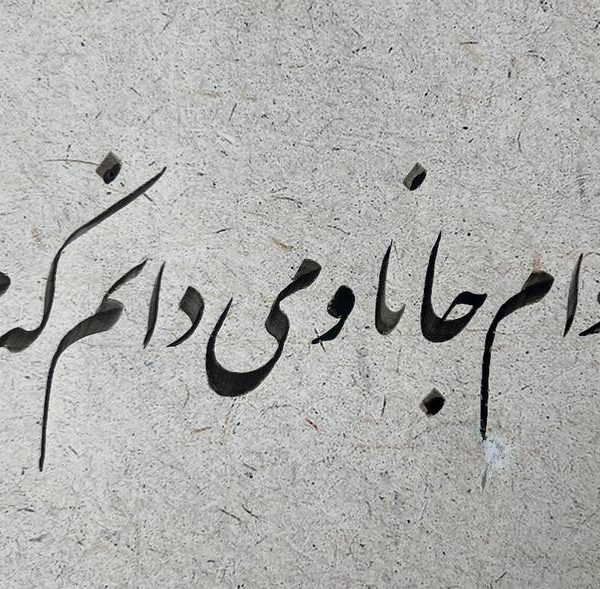 جانا و می دانم که